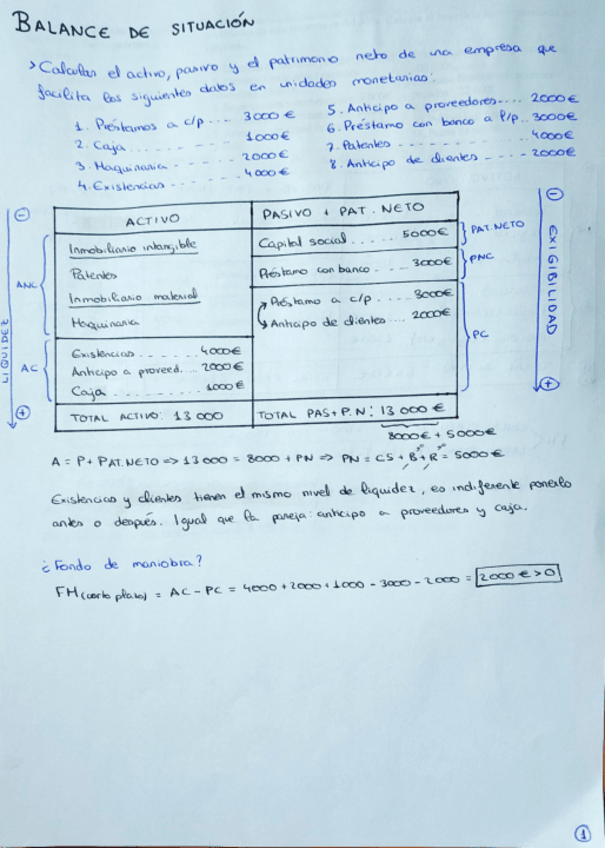 BALANCE DE SITUACIÓN
> Calculas el activo, pasivo y el patrimonio neto de una empresa que
facilita los siguientes datos en unidades monetarias:
1. Préstamos a c/p .... 3000€
2. Caja ........ 1000€
3. Maquinaria ...... 2000€
4. Existencias ...... 4000€
5. Anticipo a proveedores.... 2000€
6. Préstamo con banco a l/p.. 3000€
7. Patentes ........ 4000€
8. Anticipo de clientes .... 2000€
ACTIVO
PASIVO + PAT. NETO
Inmobiliario intangible
Patentes
Inmobiliario material
Maquinaria
Existencias ...... 4000€
Anticipo a proveed.... 2000€
Caja ........ 1000€
TOTAL ACTIVO: 13 000
Capital social ..... 5000€
Préstamo con banco... 3000€
Préstamo a c/p .... 3000€
Anticipo de clientes ... 2000€
TOTAL PAS+P.N: 13 000 €
8000€ + 5000€
LIQUIDEZ
ANC
AC
PAT.NETO
PNC
PC
EXIGIBILIDAD
A = P + PAT.NETO => 13 000 = 8000 + PN => PN = CS + B + R = 5000€
Existencias y clientes tienen el mismo nivel de liquidez, es indiferente ponerlo
antes o después. Igual que la pareja: anticipo a proveedores y caja.
¿Fondo de maniobra?
FM (corto plazo) = AC - PC = 4000 + 2000 + 1000 - 3000 - 2000 = 2000 € > 0
1